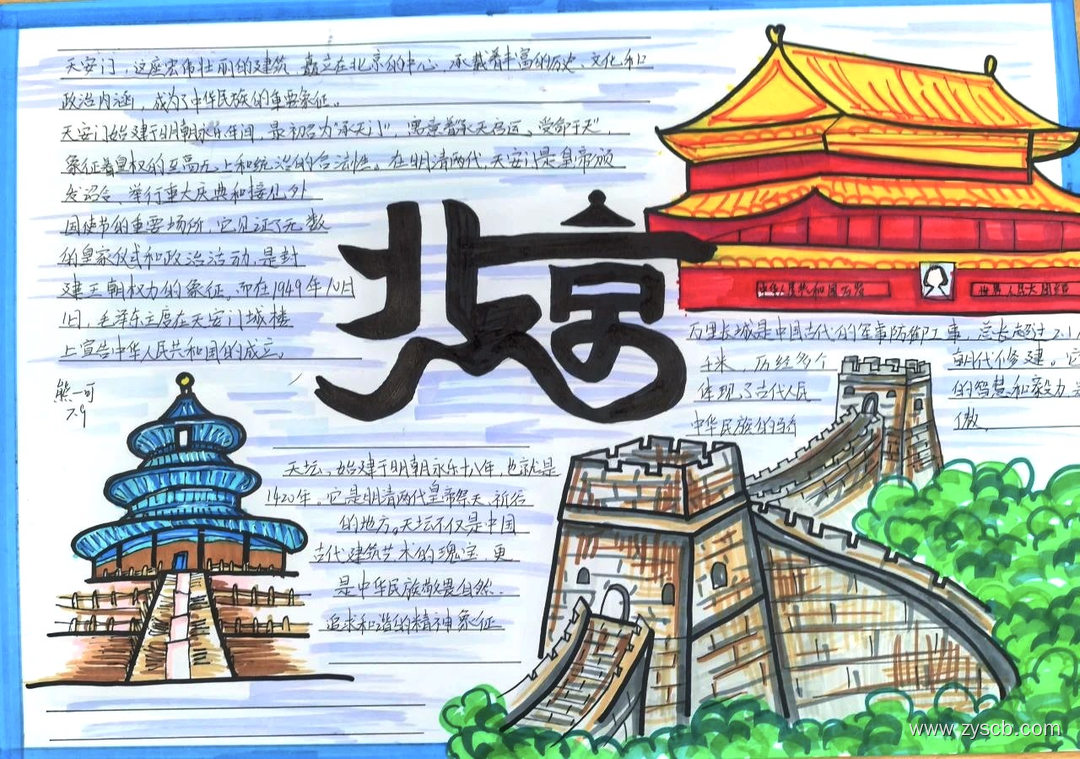 天安门，这座宏伟壮丽的建筑，矗立在北京的中心，承载着丰富的历史、文化和
政治内涵，成为了中华民族的重要象征。
天安门始建于明朝永乐年间，最初名为"承天门"，寓意着承天启运、受命于天，
象征着皇权的至高无上和统治的合法性。在明清两代，天安门是皇帝颁
发诏令、举行重大庆典和接见外
国使节的重要场所，它见证了无数
的皇家仪式和政治活动，是封
建王朝权力的象征。而在1949年10月
1日，毛泽东主席在天安门城楼
上宣告中华人民共和国的成立。
北京
中华人民共和国万岁
世界人民大团结
万里长城是中国古代的军事防御工事，总长超过2.1
千米，历经多个朝代修建。它
体现了古代人民的智慧和毅力
中华民族的骄傲。
熊一可
7.9
天坛，始建于明朝永乐十八年，也就是
1420年。它是明清两代皇帝祭天、祈谷
的地方。天坛不仅是中国
古代建筑艺术的瑰宝，更
是中华民族敬畏自然、
追求和谐的精神象征
www.zyscb.com